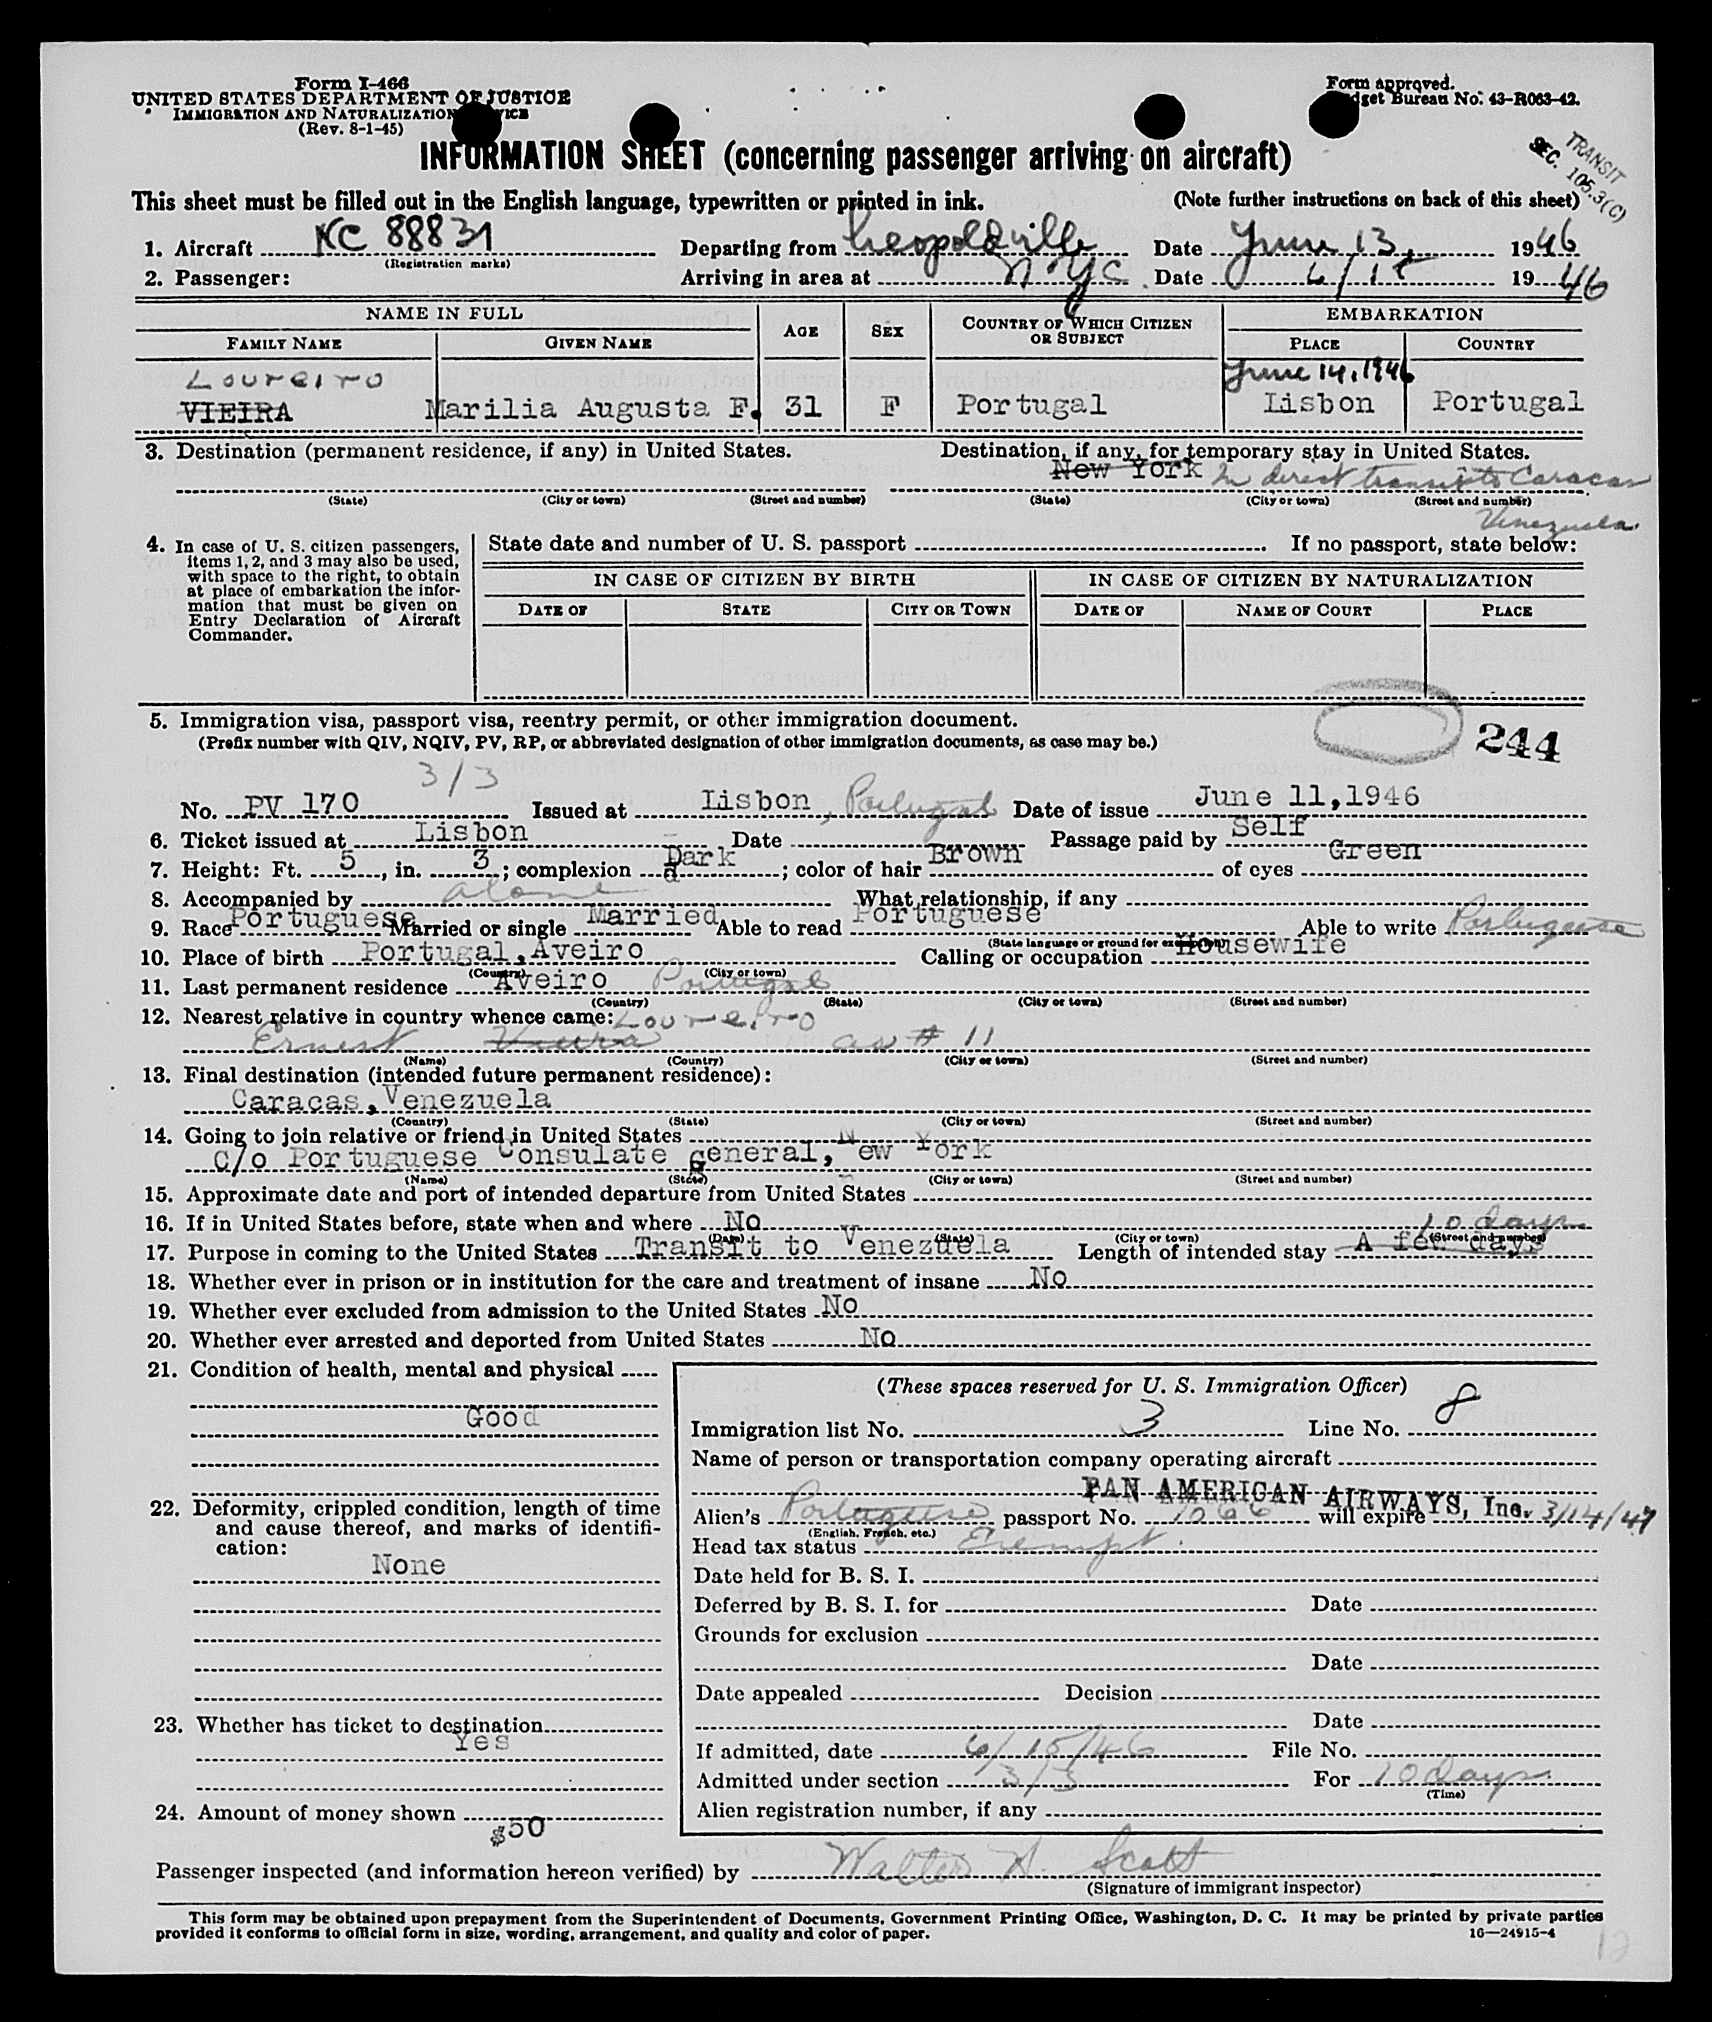 Form I-466
UNITED STATES DEPARTMENT OF JUSTICE
IMMIGRATION AND NATURALIZATION SERVICE
(Rev. 8-1-45)
Form approved.
Budget Bureau No. 43-R063-42.
TRANSIT
SEC. 105.3(C)
INFORMATION SHEET (concerning passenger arriving on aircraft)
This sheet must be filled out in the English language, typewritten or printed in ink. (Note further instructions on back of this sheet)
1. Aircraft NC 88831 Departing from Leopoldville Date June 13, 1946
(Registration marks)
2. Passenger: Arriving in area at N.Y.C. Date 6/15 1946
NAME IN FULL AGE SEX COUNTRY OF WHICH CITIZEN OR SUBJECT EMBARKATION
FAMILY NAME GIVEN NAME PLACE COUNTRY
Loureiro June 14, 1946
VIEIRA Marilia Augusta F. 31 F Portugal Lisbon Portugal
3. Destination (permanent residence, if any) in United States. Destination, if any, for temporary stay in United States.
New York In direct transit to Caracas
(State) (City or town) (Street and number) (State) (City or town) (Street and number)
Venezuela.
4. In case of U. S. citizen passengers, items 1, 2, and 3 may also be used, with space to the right, to obtain at place of embarkation the information that must be given on Entry Declaration of Aircraft Commander.
State date and number of U. S. passport If no passport, state below:
IN CASE OF CITIZEN BY BIRTH IN CASE OF CITIZEN BY NATURALIZATION
DATE OF STATE CITY OR TOWN DATE OF NAME OF COURT PLACE
5. Immigration visa, passport visa, reentry permit, or other immigration document.
(Prefix number with QIV, NQIV, PV, RP, or abbreviated designation of other immigration documents, as case may be.)
244
3/3
No. PV 170 Issued at Lisbon, Portugal Date of issue June 11,1946
6. Ticket issued at Lisbon Date Passage paid by Self
7. Height: Ft. 5, in. 3; complexion Dark; color of hair Brown of eyes Green
8. Accompanied by alone What relationship, if any
9. Race Portuguese Married or single Married Able to read Portuguese Able to write Portuguese
(State language or ground for exemption)
10. Place of birth Portugal, Aveiro Calling or occupation Housewife
(Country) (City or town)
11. Last permanent residence Aveiro Portugal
(Country) (State) (City or town) (Street and number)
12. Nearest relative in country whence came: Loureiro
Ernest Vieira as # 11
(Name) (Country) (City or town) (Street and number)
13. Final destination (intended future permanent residence):
Caracas, Venezuela
(Country) (State) (City or town) (Street and number)
14. Going to join relative or friend in United States
C/o Portuguese Consulate general, New York
(Name) (State) (City or town) (Street and number)
15. Approximate date and port of intended departure from United States
16. If in United States before, state when and where No
(Date) (State) (City or town) (Street and number)
10 days
17. Purpose in coming to the United States Transit to Venezuela Length of intended stay A few days
18. Whether ever in prison or in institution for the care and treatment of insane No
19. Whether ever excluded from admission to the United States No
20. Whether ever arrested and deported from United States No
21. Condition of health, mental and physical
Good
22. Deformity, crippled condition, length of time and cause thereof, and marks of identification:
None
23. Whether has ticket to destination
Yes
24. Amount of money shown
$50
(These spaces reserved for U. S. Immigration Officer)
Immigration list No. 3 Line No. 8
Name of person or transportation company operating aircraft
PAN AMERICAN AIRWAYS, Inc.
Alien's Portuguese passport No. 1066 will expire 3/14/47
(English, French, etc.)
Head tax status Exempt
Date held for B. S. I.
Deferred by B. S. I. for Date
Grounds for exclusion
Date
Date appealed Decision
Date
If admitted, date 6/15/46 File No.
Admitted under section 3/3 For 10 days
(Time)
Alien registration number, if any
Passenger inspected (and information hereon verified) by Walter H. Scott
(Signature of immigrant inspector)
This form may be obtained upon prepayment from the Superintendent of Documents, Government Printing Office, Washington, D. C. It may be printed by private parties
provided it conforms to official form in size, wording, arrangement, and quality and color of paper.
16—24915-4
12